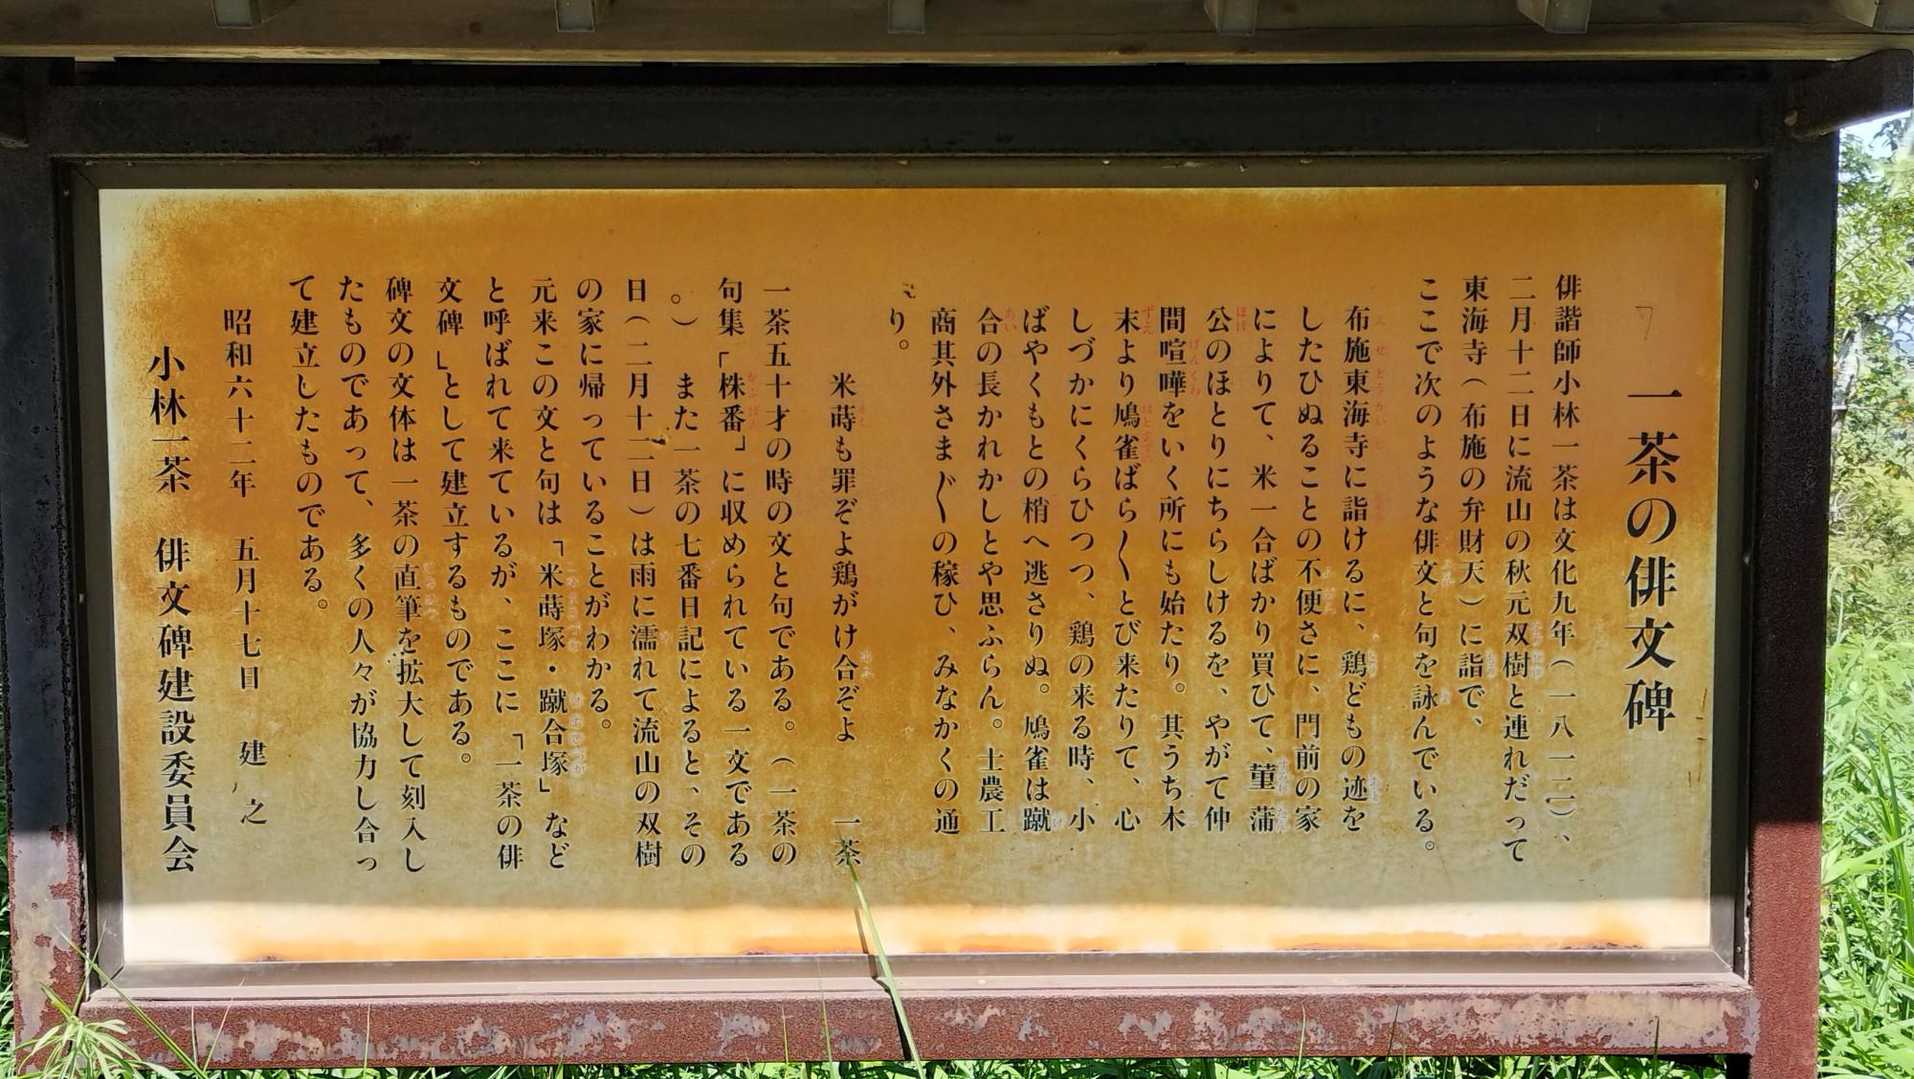 一茶の俳文碑
俳諧師小林一茶は文化九年（一八一二）、
二月十二日に流山の秋元双樹と連れだって
東海寺（布施の弁財天）に詣で、
ここで次のような俳文と句を詠んでいる。
布施東海寺に詣けるに、鶏どもの迹を
したひぬることの不便さに、門前の家
によりて、米一合ばかり買ひて、菫蒲
公のほとりにちらしけるを、やがて仲
間喧嘩をいく所にも始たり。其うち木
末より鳩雀ばら〱とび来たりて、心
しづかにくらひつつ、鶏の来る時、小
ばやくもとの梢へ逃さりぬ。鳩雀は蹴
合の長かれかしとや思ふらん。士農工
商其外さま〲の稼ひ、みなかくの通
り。
米蒔も罪ぞよ鶏がけ合ぞよ　一茶
一茶五十才の時の文と句である。（一茶の
句集「株番」に収められている一文である
。）また一茶の七番日記によると、その
日（二月十二日）は雨に濡れて流山の双樹
の家に帰っていることがわかる。
元来この文と句は「米蒔塚・蹴合塚」など
と呼ばれて来ているが、ここに「一茶の俳
文碑」として建立するものである。
碑文の文体は一茶の直筆を拡大して刻入し
たものであって、多くの人々が協力し合っ
て建立したものである。
昭和六十二年　五月十七日　建之
小林一茶　俳文碑建設委員会